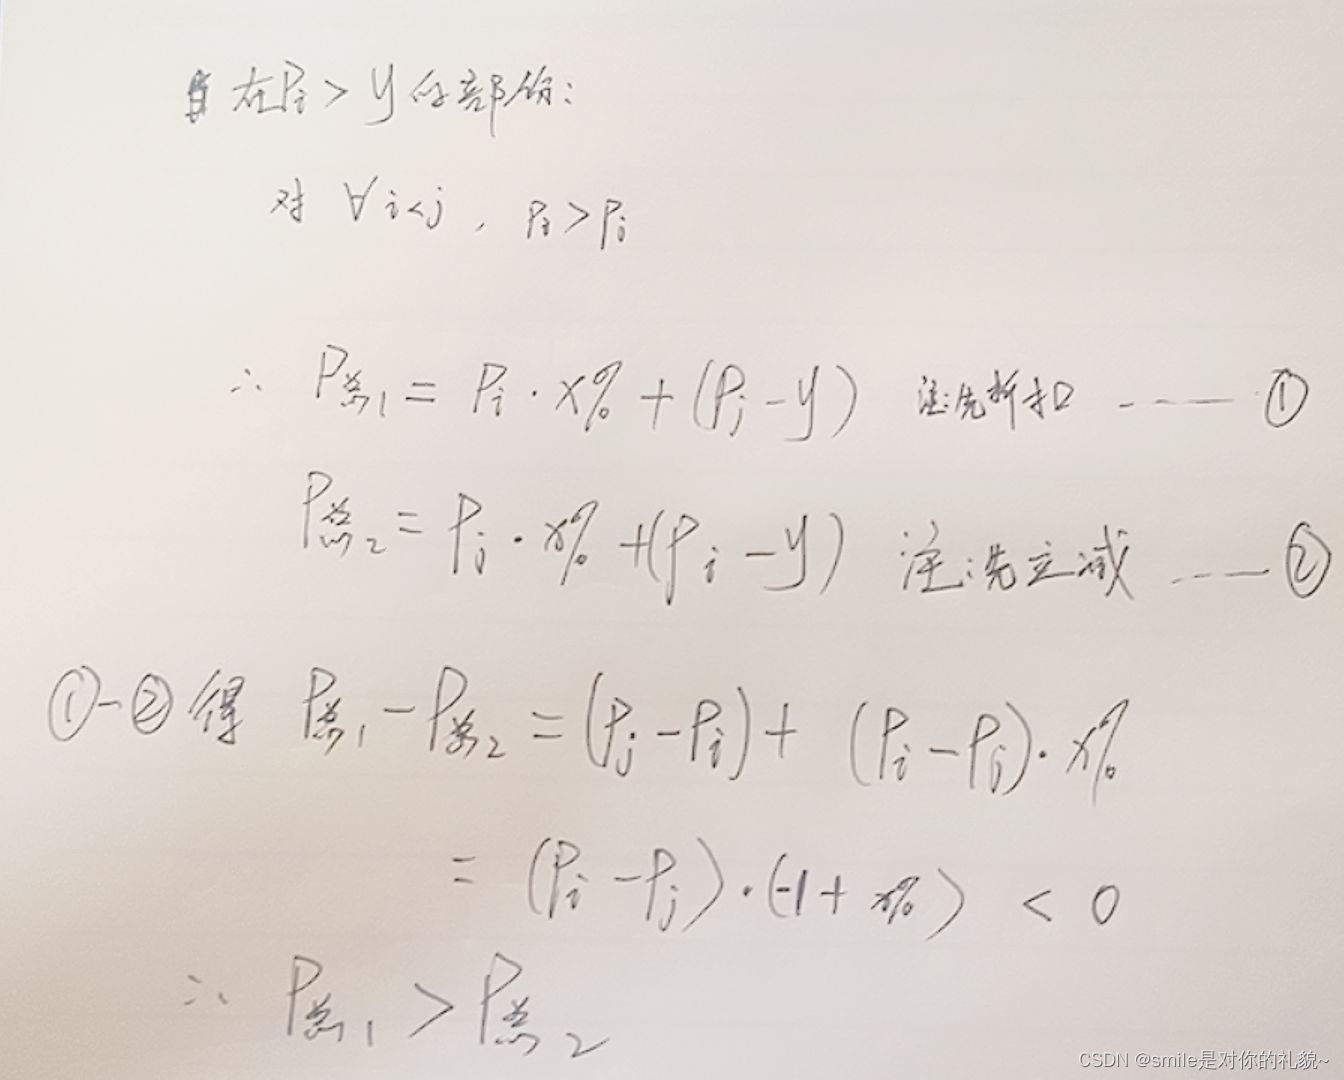 在Pi > y的部份:
对 ∀i<j , Pi > Pj
∴ P总1 = Pi · x% + (Pj - y) 注:先折扣 ------ ①
P总2 = Pj · x% + (Pi - y) 注:先立减 ------ ②
①-② 得 P总1 - P总2 = (Pj - Pi) + (Pi - Pj) · x%
= (Pi - Pj) · (-1 + x%) < 0
∴ P总1 > P总2
CSDN @smile是对你的礼貌~